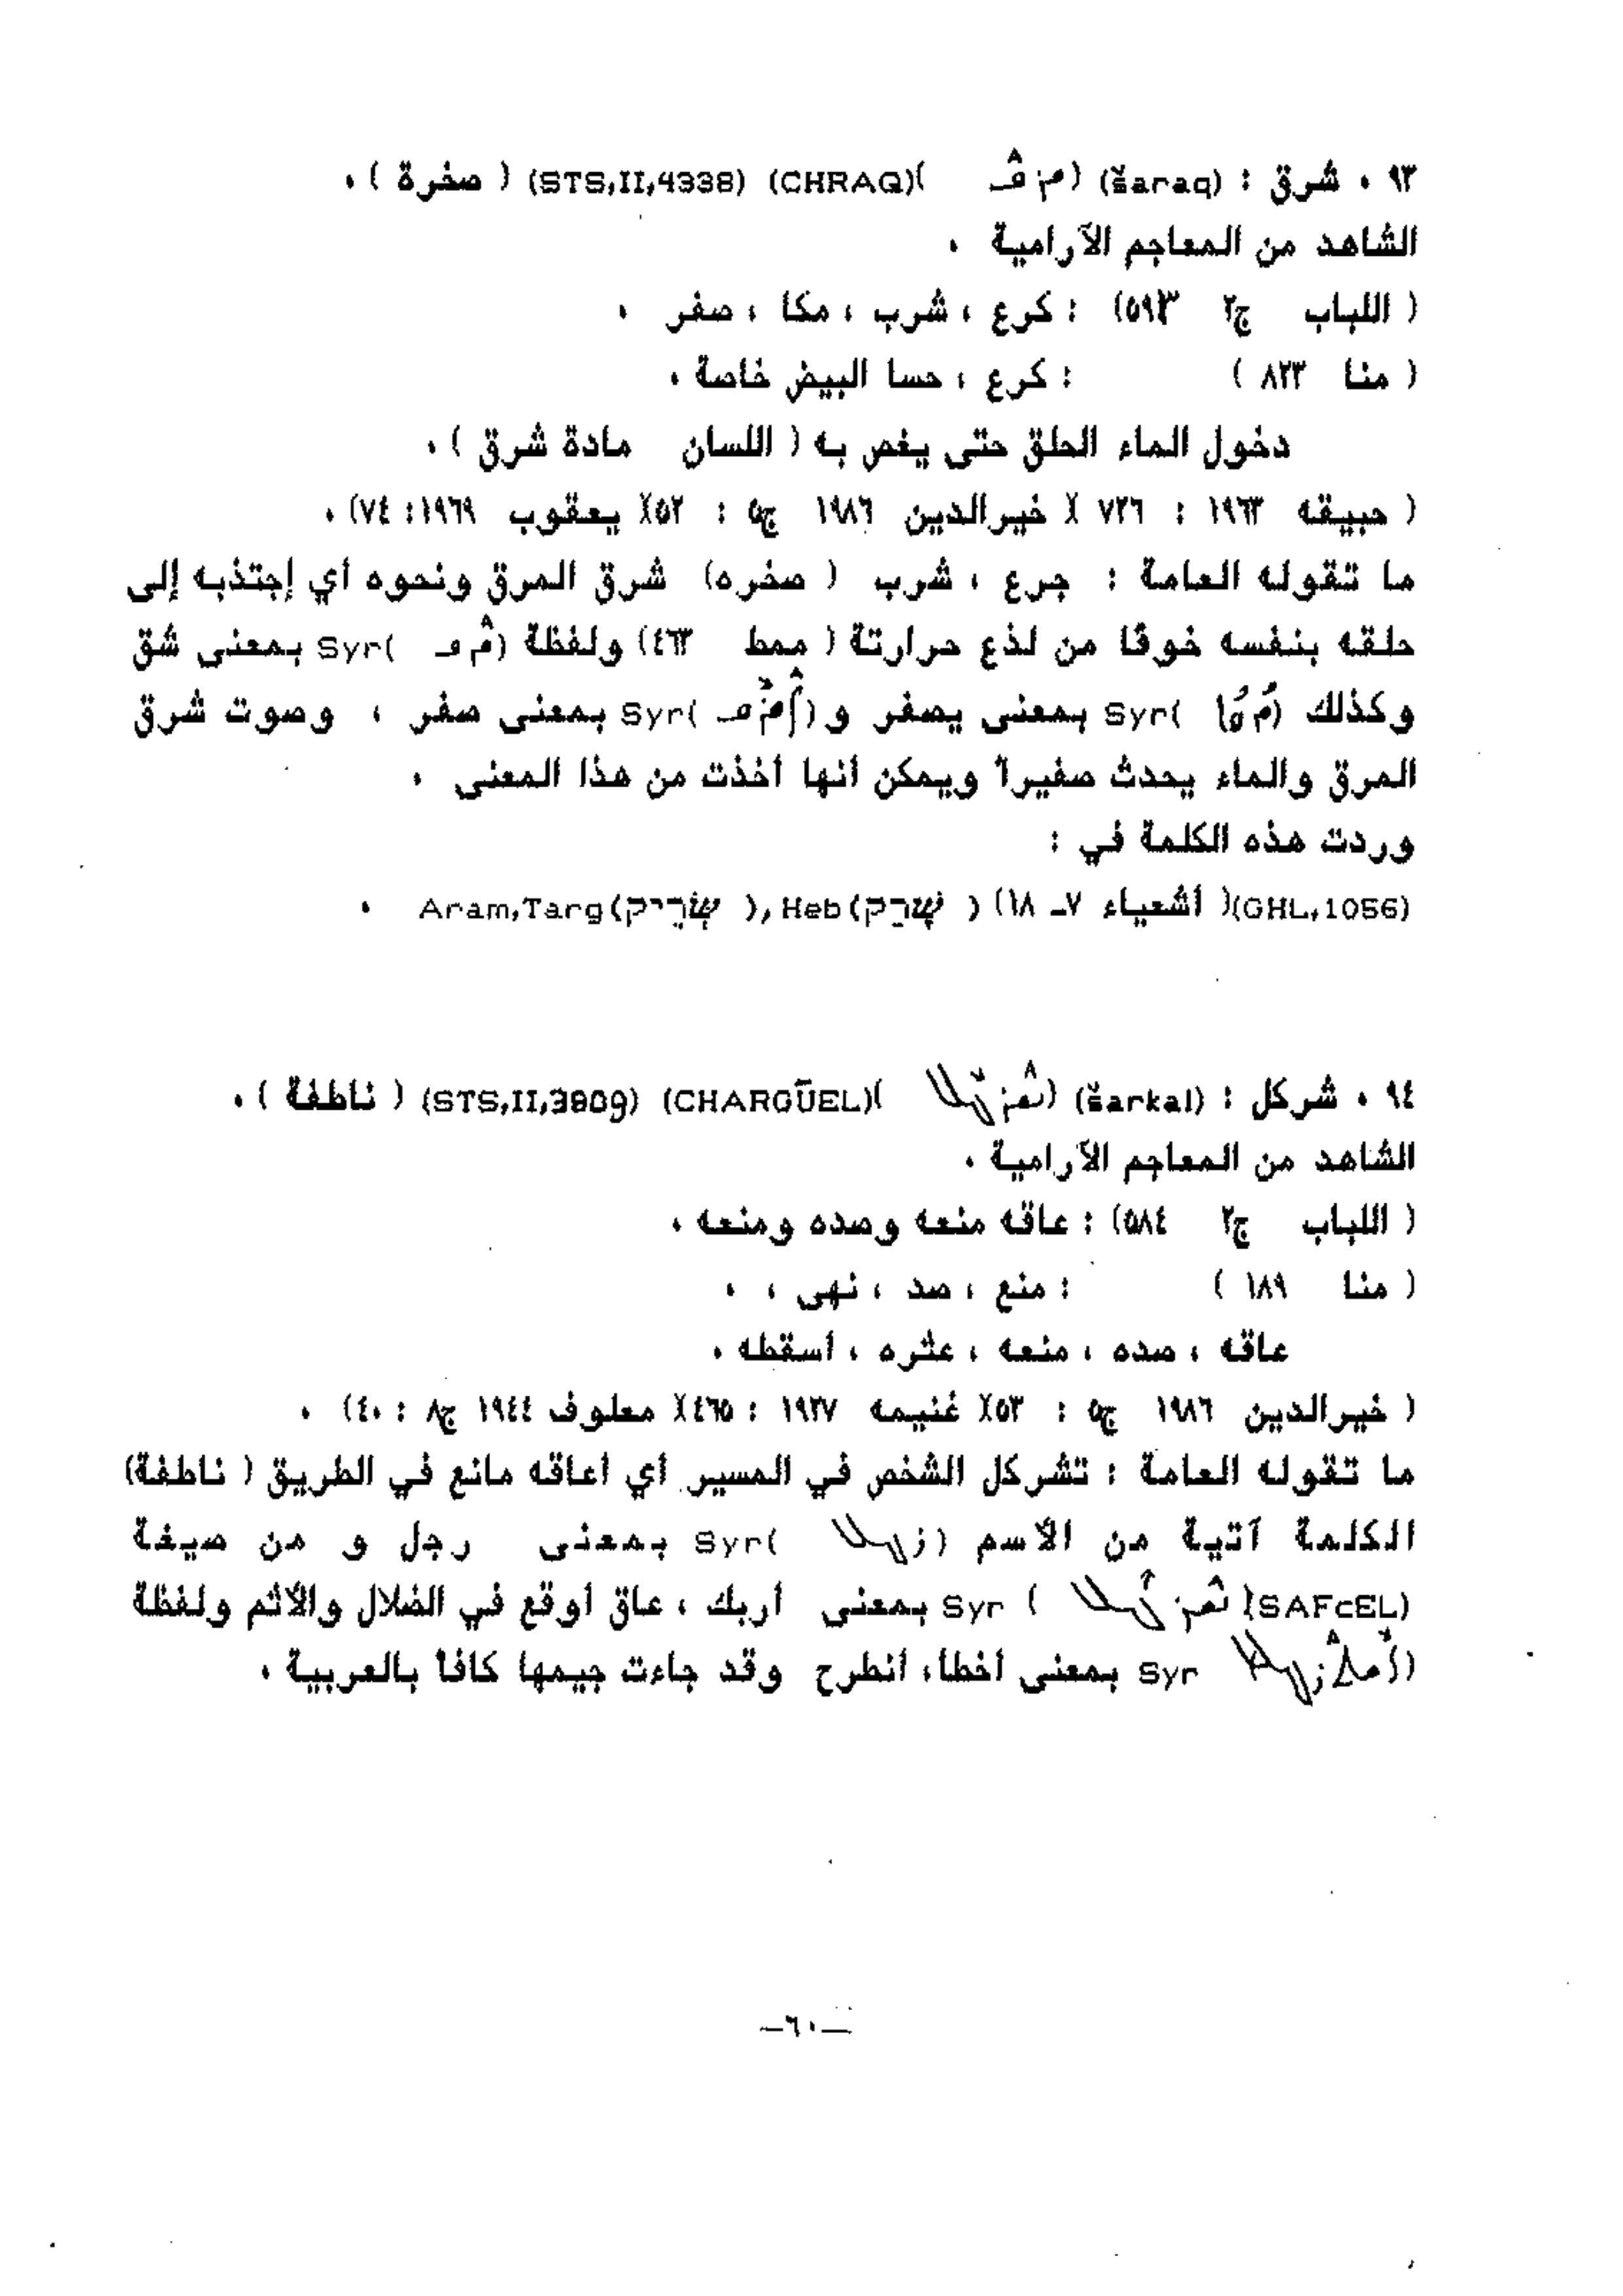 ٩٣ . شرق : (šaraq) (ܣܪܩ) (CHRAQ) (STS,II,4338) ( صخرة ) .
الشاهد من المعاجم الآرامية .
( اللباب ج٢ ٥٩٣) : كرع ، شرب ، مكا ، صفر .
( منا ٨٢٣ ) : كرع ، حسا البيض خاصة .
دخول الماء الحلق حتى يغص به ( اللسان مادة شرق ) .
( حبيقه ١٩٦٣ : ٧٢٦ )( خيرالدين ١٩٨٦ ج٥ : ٥٢)( يعقوب ١٩٦٩: ٧٤) .
ما تقوله العامة : جرع ، شرب ( صخره) شرق المرق ونحوه أي إجتذبه إلى
حلقه بنفسه خوفًا من لذع حرارتة ( ممط ٤٦٣) ولفظة ( )Syr بمعنى شق
وكذلك ( )Syr بمعنى يصفر و( )Syr بمعنى صفر ، وصوت شرق
المرق والماء يحدث صفيرا ويمكن أنها أخذت من هذا المعنى .
وردت هذه الكلمة في :
(GHL,1056)( أشعياء ٧ـ ١٨) ( שָׁרַק )Heb ,( שְׁרִיק )Aram,Targ .
٩٤ . شركل : (šarkal) ( ) (CHARGŪEL) (STS,II,3809) ( ناطفة ) .
الشاهد من المعاجم الآرامية .
( اللباب ج٢ ٥٨٤) : عاقه منعه وصده ومنعه .
( منا ١٨٩ ) : منع ، صد ، نهى ، .
عاقه ، صده ، منعه ، عثره ، أسقطه .
( خيرالدين ١٩٨٦ ج٥ : ٥٣)( غنيمه ١٩٢٧ : ٤٦٥)( معلوف ١٩٤٤ ج٨ : ٤٠) .
ما تقوله العامة : تشركل الشخص في المسير أي أعاقه مانع في الطريق ( ناطفة)
الكلمة آتية من الأسم ( )Syr بمعنى رجل و من صيغة
(SAFcEL)( ) Syr بمعنى أربك ، عاق أوقع في الضلال والأثم ولفظة
( Syr بمعنى أخطأ، أنطرح وقد جاءت جيمها كافا بالعربية .
—٦٠—